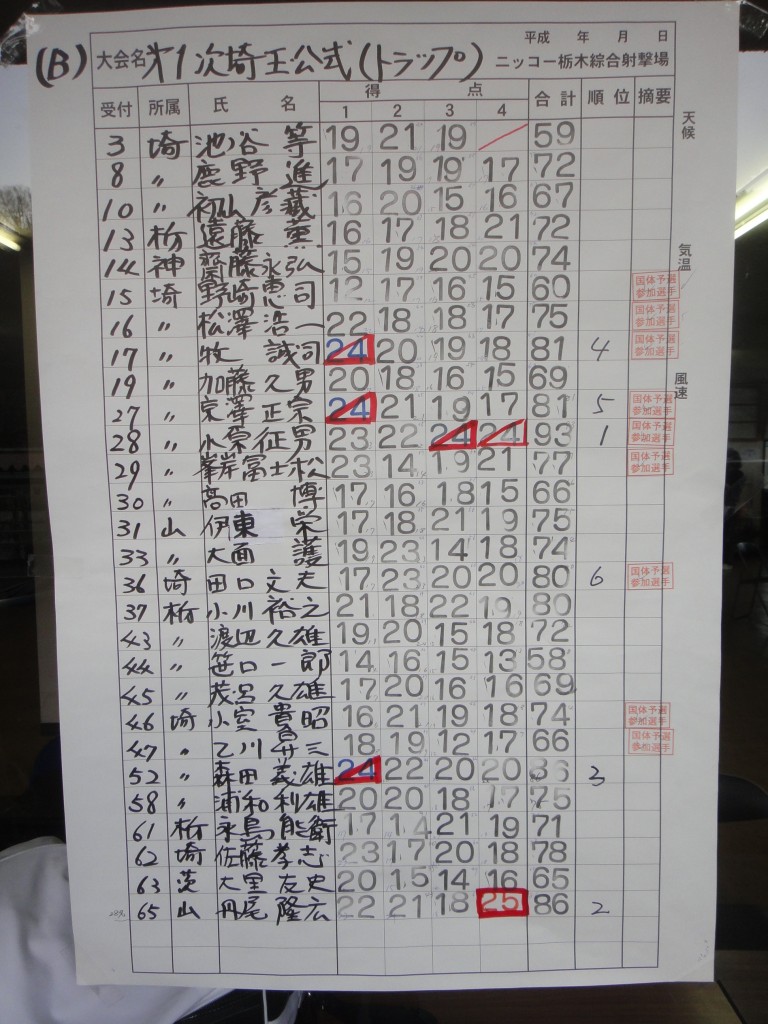 平成 年 月 日
(B) 大会名 才1次埼玉公式(トラップ) ニッコー栃木綜合射撃場
受付 所属 氏 名 得 点 合計 順位 摘要 天候
1 2 3 4
3 埼 池谷 等 19 21 19 59
8 〃 鹿野 進 17 19 19 17 72
10 〃 初山 彦蔵 16 20 15 16 67
13 栃 遠藤 16 17 18 21 72
14 神 齋藤 永弘 15 19 20 20 74 気温
15 埼 野崎 恵司 12 17 16 15 60 国体予選参加選手
16 〃 松澤 浩一 22 18 18 17 75 国体予選参加選手
17 〃 牧 誠司 24 20 19 18 81 4 国体予選参加選手
19 〃 加藤 久男 20 18 16 15 69 風速
27 〃 京澤 正宗 24 21 19 17 81 5 国体予選参加選手
28 〃 小原 征男 23 22 24 24 93 1 国体予選参加選手
29 〃 峯岸 冨士松 23 14 19 21 77 国体予選参加選手
30 〃 高田 博 17 16 18 15 66
31 山 伊東 栄 17 18 21 19 75
33 〃 大面 護 19 23 14 18 74
36 埼 田口 文夫 17 23 20 20 80 6 国体予選参加選手
37 栃 小川 裕之 21 18 22 19 80
43 〃 渡辺 久雄 19 20 15 18 72
44 〃 笹口 一郎 14 16 15 13 58
45 〃 茂呂 久雄 17 20 16 16 69
46 埼 小室 貴昭 16 21 19 18 74 国体予選参加選手
47 〃 乙川 三 18 19 12 17 66 国体予選参加選手
52 〃 森田 義雄 24 22 20 20 86 3
58 〃 浦和 利雄 20 20 18 17 75
61 栃 永島 能衛 17 14 21 19 71
62 埼 佐藤 孝志 23 17 20 18 78
63 茨 大里 友史 20 15 14 16 65
65 山 丹尾 隆広 22 21 18 25 86 2